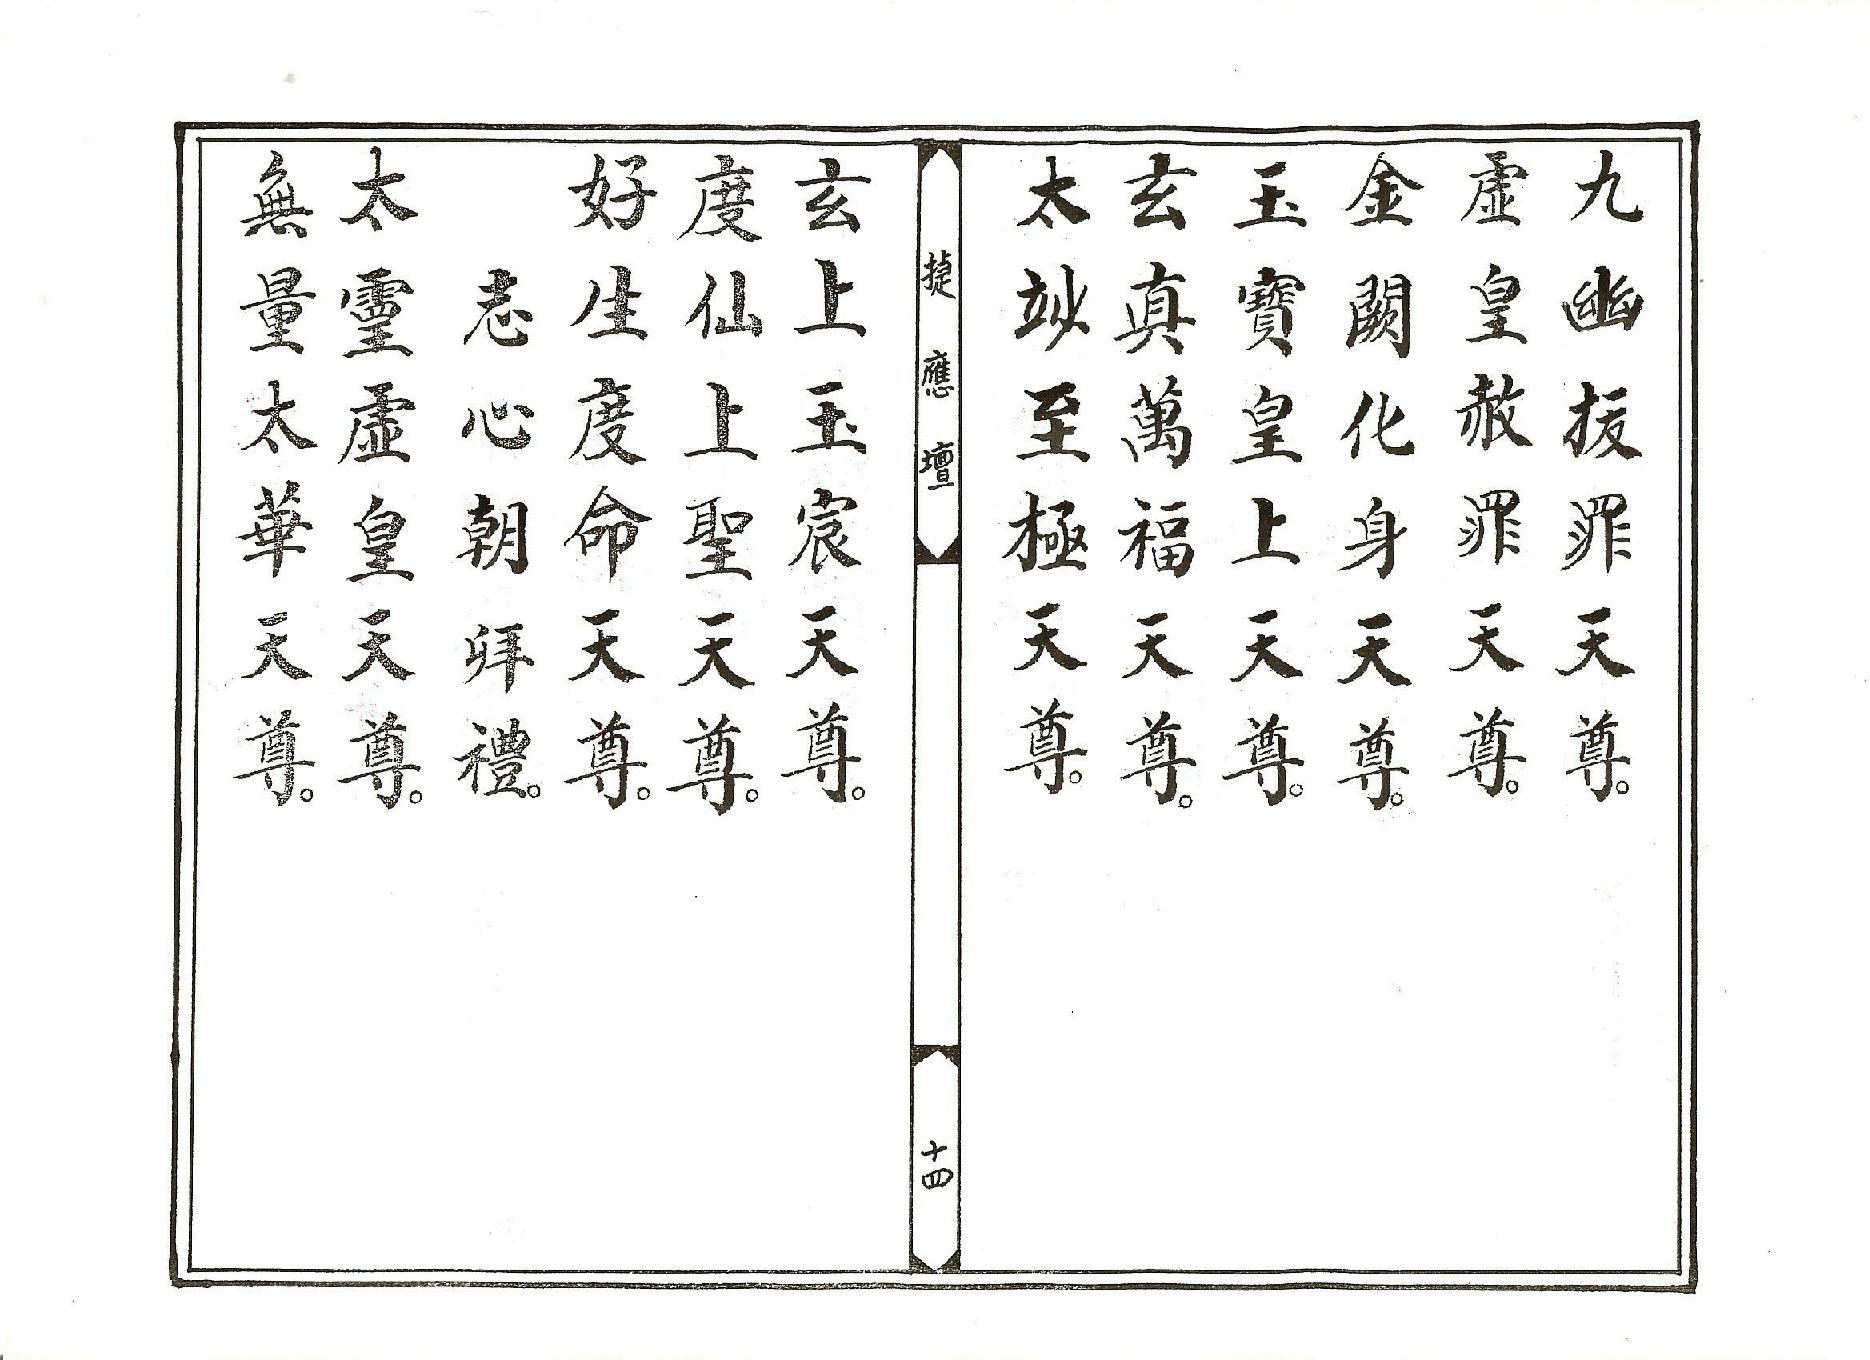 九幽拔罪天尊。
虛皇赦罪天尊。
金闕化身天尊。
玉寶皇上天尊。
玄真萬福天尊。
太玅至極天尊。
捷應壇
十四
玄上玉宸天尊。
度仙上聖天尊。
好生度命天尊。
志心朝拜禮。
太靈虛皇天尊。
無量太華天尊。